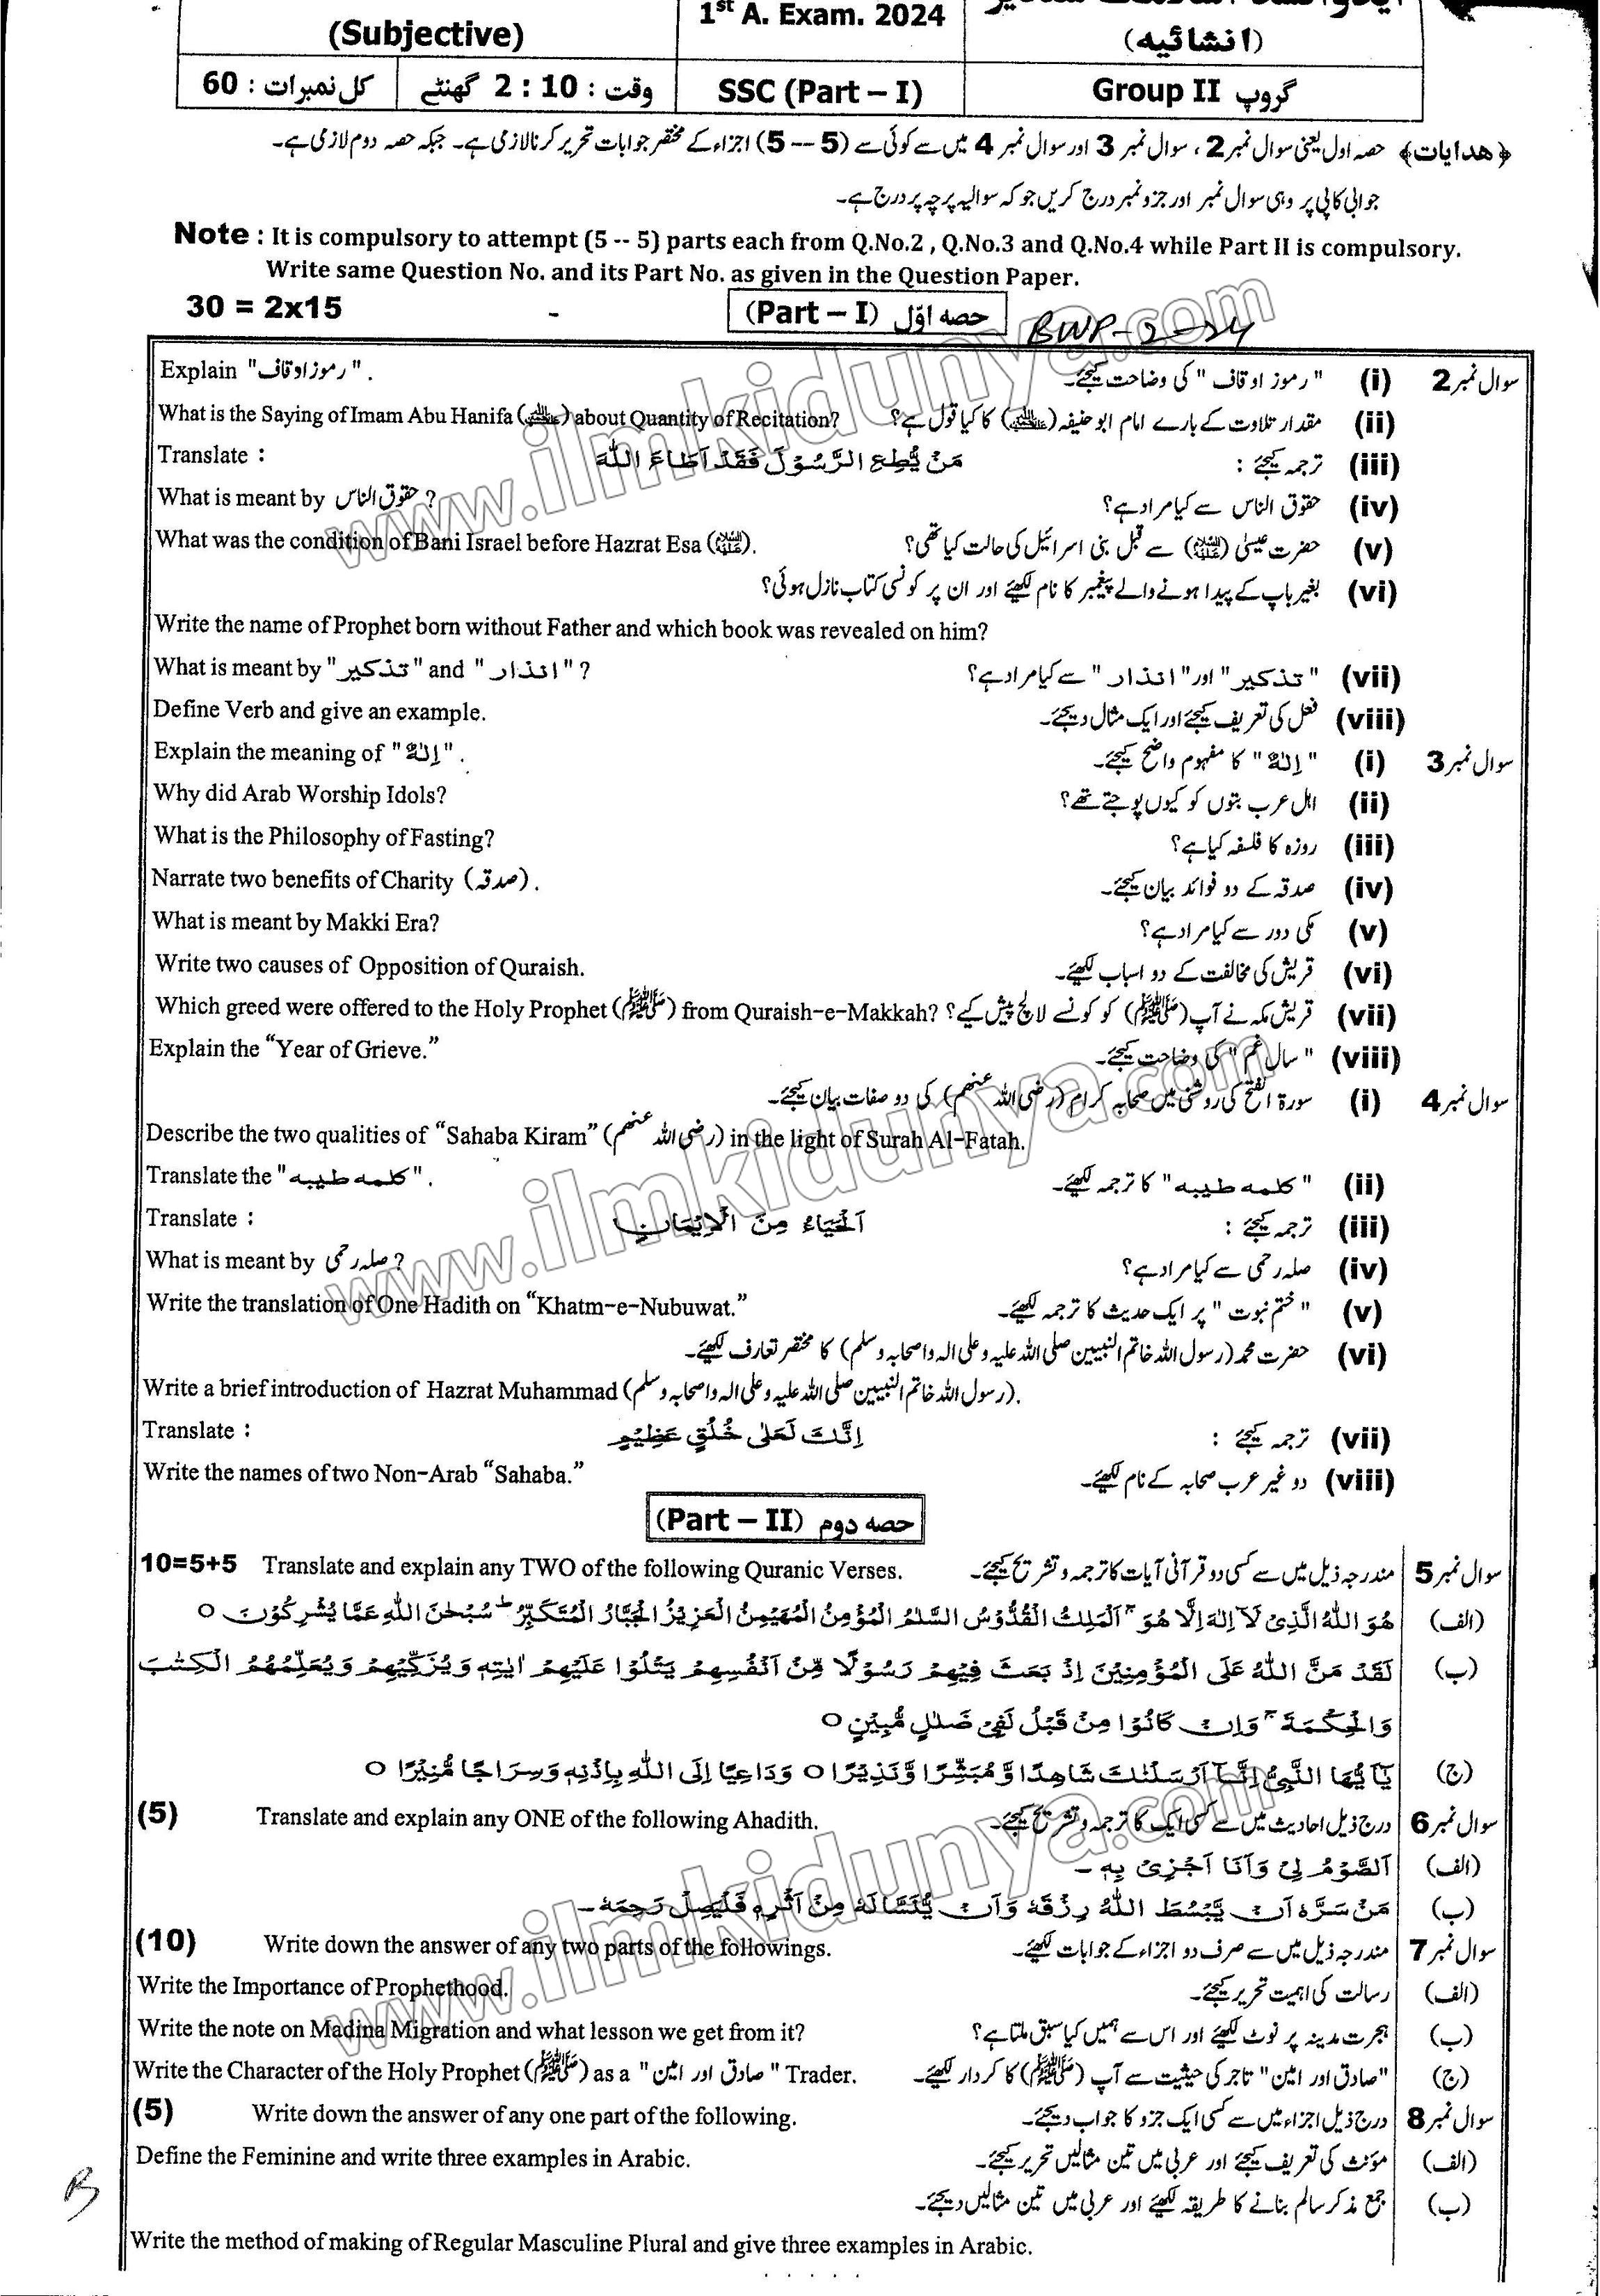 (Subjective)
1st A. Exam. 2024
(انشائیہ)
کل نمبرات : 60
وقت : 2 : 10 گھنٹے
SSC (Part – I)
Group II گروپ
﴿ھدایات﴾ حصہ اول یعنی سوال نمبر 2، سوال نمبر 3 اور سوال نمبر 4 میں سے کوئی سے (5 -- 5) اجزاء کے مختصر جوابات تحریر کرنا لازمی ہے۔ جبکہ حصہ دوم لازمی ہے۔
جوابی کاپی پر وہی سوال نمبر اور جزو نمبر درج کریں جو کہ سوالیہ پرچہ پر درج ہے۔
Note : It is compulsory to attempt (5 -- 5) parts each from Q.No.2 , Q.No.3 and Q.No.4 while Part II is compulsory.
Write same Question No. and its Part No. as given in the Question Paper.
30 = 2x15
(Part – I) حصہ اوّل
BWP-2-24
سوال نمبر 2 (i) "رموز اوقاف" کی وضاحت کیجئے۔
Explain "رموز اوقاف".
(ii) مقدار تلاوت کے بارے امام ابو حنیفہ (رحمۃ اللہ علیہ) کا کیا قول ہے؟
What is the Saying of Imam Abu Hanifa (رحمۃ اللہ علیہ) about Quantity of Recitation?
(iii) ترجمہ کیجئے : مَنْ يُّطِعِ الرَّسُوْلَ فَقَدْ اَطَاعَ اللّٰهَ
Translate :
(iv) حقوق الناس سے کیا مراد ہے؟
What is meant by حقوق الناس ?
(v) حضرت عیسیٰ (علیہ السلام) سے قبل بنی اسرائیل کی حالت کیا تھی؟
What was the condition of Bani Israel before Hazrat Esa (علیہ السلام).
(vi) بغیر باپ کے پیدا ہونے والے پیغمبر کا نام لکھیئے اور ان پر کونسی کتاب نازل ہوئی؟
Write the name of Prophet born without Father and which book was revealed on him?
(vii) "تذکیر" اور "انذار" سے کیا مراد ہے؟
What is meant by "تذکیر" and "انذار" ?
(viii) فعل کی تعریف کیجئے اور ایک مثال دیجئے۔
Define Verb and give an example.
سوال نمبر 3 (i) "اِلٰهٌ" کا مفہوم واضح کیجئے۔
Explain the meaning of "اِلٰهٌ" .
(ii) اہل عرب بتوں کو کیوں پوجتے تھے؟
Why did Arab Worship Idols?
(iii) روزہ کا فلسفہ کیا ہے؟
What is the Philosophy of Fasting?
(iv) صدقہ کے دو فوائد بیان کیجئے۔
Narrate two benefits of Charity (صدقہ) .
(v) مکی دور سے کیا مراد ہے؟
What is meant by Makki Era?
(vi) قریش کی مخالفت کے دو اسباب لکھیئے۔
Write two causes of Opposition of Quraish.
(vii) قریش مکہ نے آپ (ﷺ) کو کونسے لالچ پیش کیے؟
Which greed were offered to the Holy Prophet (ﷺ) from Quraish-e-Makkah?
(viii) "سال غم" کی وضاحت کیجئے۔
Explain the “Year of Grieve.”
سوال نمبر 4 (i) سورۃ الفتح کی روشنی میں صحابہ کرام (رضی اللہ عنھم) کی دو صفات بیان کیجئے۔
Describe the two qualities of “Sahaba Kiram” (رضی اللہ عنھم) in the light of Surah Al-Fatah.
(ii) "کلمہ طیبہ" کا ترجمہ لکھیئے۔
Translate the "کلمہ طیبہ" .
(iii) ترجمہ کیجئے : اَلْحَيَاءُ مِنَ الْاِيْمَانِ
Translate :
(iv) صلہ رحمی سے کیا مراد ہے؟
What is meant by صلہ رحمی ?
(v) "ختم نبوت" پر ایک حدیث کا ترجمہ لکھیئے۔
Write the translation of One Hadith on “Khatm-e-Nubuwat.”
(vi) حضرت محمد (رسول اللہ خاتم النبیین صلی اللہ علیہ وعلی الہ واصحابہ وسلم) کا مختصر تعارف لکھیئے۔
Write a brief introduction of Hazrat Muhammad (رسول اللہ خاتم النبیین صلی اللہ علیہ وعلی الہ واصحابہ وسلم).
(vii) ترجمہ کیجئے : اِنَّكَ لَعَلٰى خُلُقٍ عَظِيْمٍ
Translate :
(viii) دو غیر عرب صحابہ کے نام لکھیئے۔
Write the names of two Non-Arab “Sahaba.”
(Part – II) حصہ دوم
سوال نمبر 5 مندرجہ ذیل میں سے کسی دو قرآنی آیات کا ترجمہ و تشریح کیجئے۔
10=5+5 Translate and explain any TWO of the following Quranic Verses.
(الف) هُوَ اللّٰهُ الَّذِيْ لَآ اِلٰهَ اِلَّا هُوَ ۚ اَلْمَلِكُ الْقُدُّوْسُ السَّلٰمُ الْمُؤْمِنُ الْمُهَيْمِنُ الْعَزِيْزُ الْجَبَّارُ الْمُتَكَبِّرُ ؕ سُبْحٰنَ اللّٰهِ عَمَّا يُشْرِكُوْنَ ○
(ب) لَقَدْ مَنَّ اللّٰهُ عَلَى الْمُؤْمِنِيْنَ اِذْ بَعَثَ فِيْهِمْ رَسُوْلًا مِّنْ اَنْفُسِهِمْ يَتْلُوْا عَلَيْهِمْ اٰيٰتِهٖ وَيُزَكِّيْهِمْ وَيُعَلِّمُهُمُ الْكِتٰبَ
وَالْحِكْمَةَ ۚ وَاِنْ كَانُوْا مِنْ قَبْلُ لَفِيْ ضَلٰلٍ مُّبِيْنٍ ○
(ج) يٰٓاَيُّهَا النَّبِيُّ اِنَّآ اَرْسَلْنٰكَ شَاهِدًا وَّمُبَشِّرًا وَّنَذِيْرًا ○ وَدَاعِيًا اِلَى اللّٰهِ بِاِذْنِهٖ وَسِرَاجًا مُّنِيْرًا ○
سوال نمبر 6 درج ذیل احادیث میں سے کسی ایک کا ترجمہ و تشریح کیجئے۔
(5) Translate and explain any ONE of the following Ahadith.
(الف) اَلصَّوْمُ لِيْ وَاَنَا اَجْزِيْ بِهٖ ۔
(ب) مَنْ سَرَّهٗ اَنْ يَّبْسُطَ اللّٰهُ رِزْقَهٗ وَاَنْ يُّنْسَالَهٗ مِنْ اَثَرِهٖ فَلْيَصِلْ رَحِمَهٗ ۔
سوال نمبر 7 مندرجہ ذیل میں سے صرف دو اجزاء کے جوابات لکھیئے۔
(10) Write down the answer of any two parts of the followings.
(الف) رسالت کی اہمیت تحریر کیجئے۔
Write the Importance of Prophethood.
(ب) ہجرت مدینہ پر نوٹ لکھیئے اور اس سے ہمیں کیا سبق ملتا ہے؟
Write the note on Madina Migration and what lesson we get from it?
(ج) "صادق اور امین" تاجر کی حیثیت سے آپ (ﷺ) کا کردار لکھیئے۔
Write the Character of the Holy Prophet (ﷺ) as a "صادق اور امین" Trader.
سوال نمبر 8 درج ذیل اجزاء میں سے کسی ایک جزو کا جواب دیجئے۔
(5) Write down the answer of any one part of the following.
(الف) مؤنث کی تعریف کیجئے اور عربی میں تین مثالیں تحریر کیجئے۔
Define the Feminine and write three examples in Arabic.
(ب) جمع مذکر سالم بنانے کا طریقہ لکھیئے اور عربی میں تین مثالیں دیجئے۔
Write the method of making of Regular Masculine Plural and give three examples in Arabic.
www.ilmkidunya.com
www.ilmkidunya.com
www.ilmkidunya.com